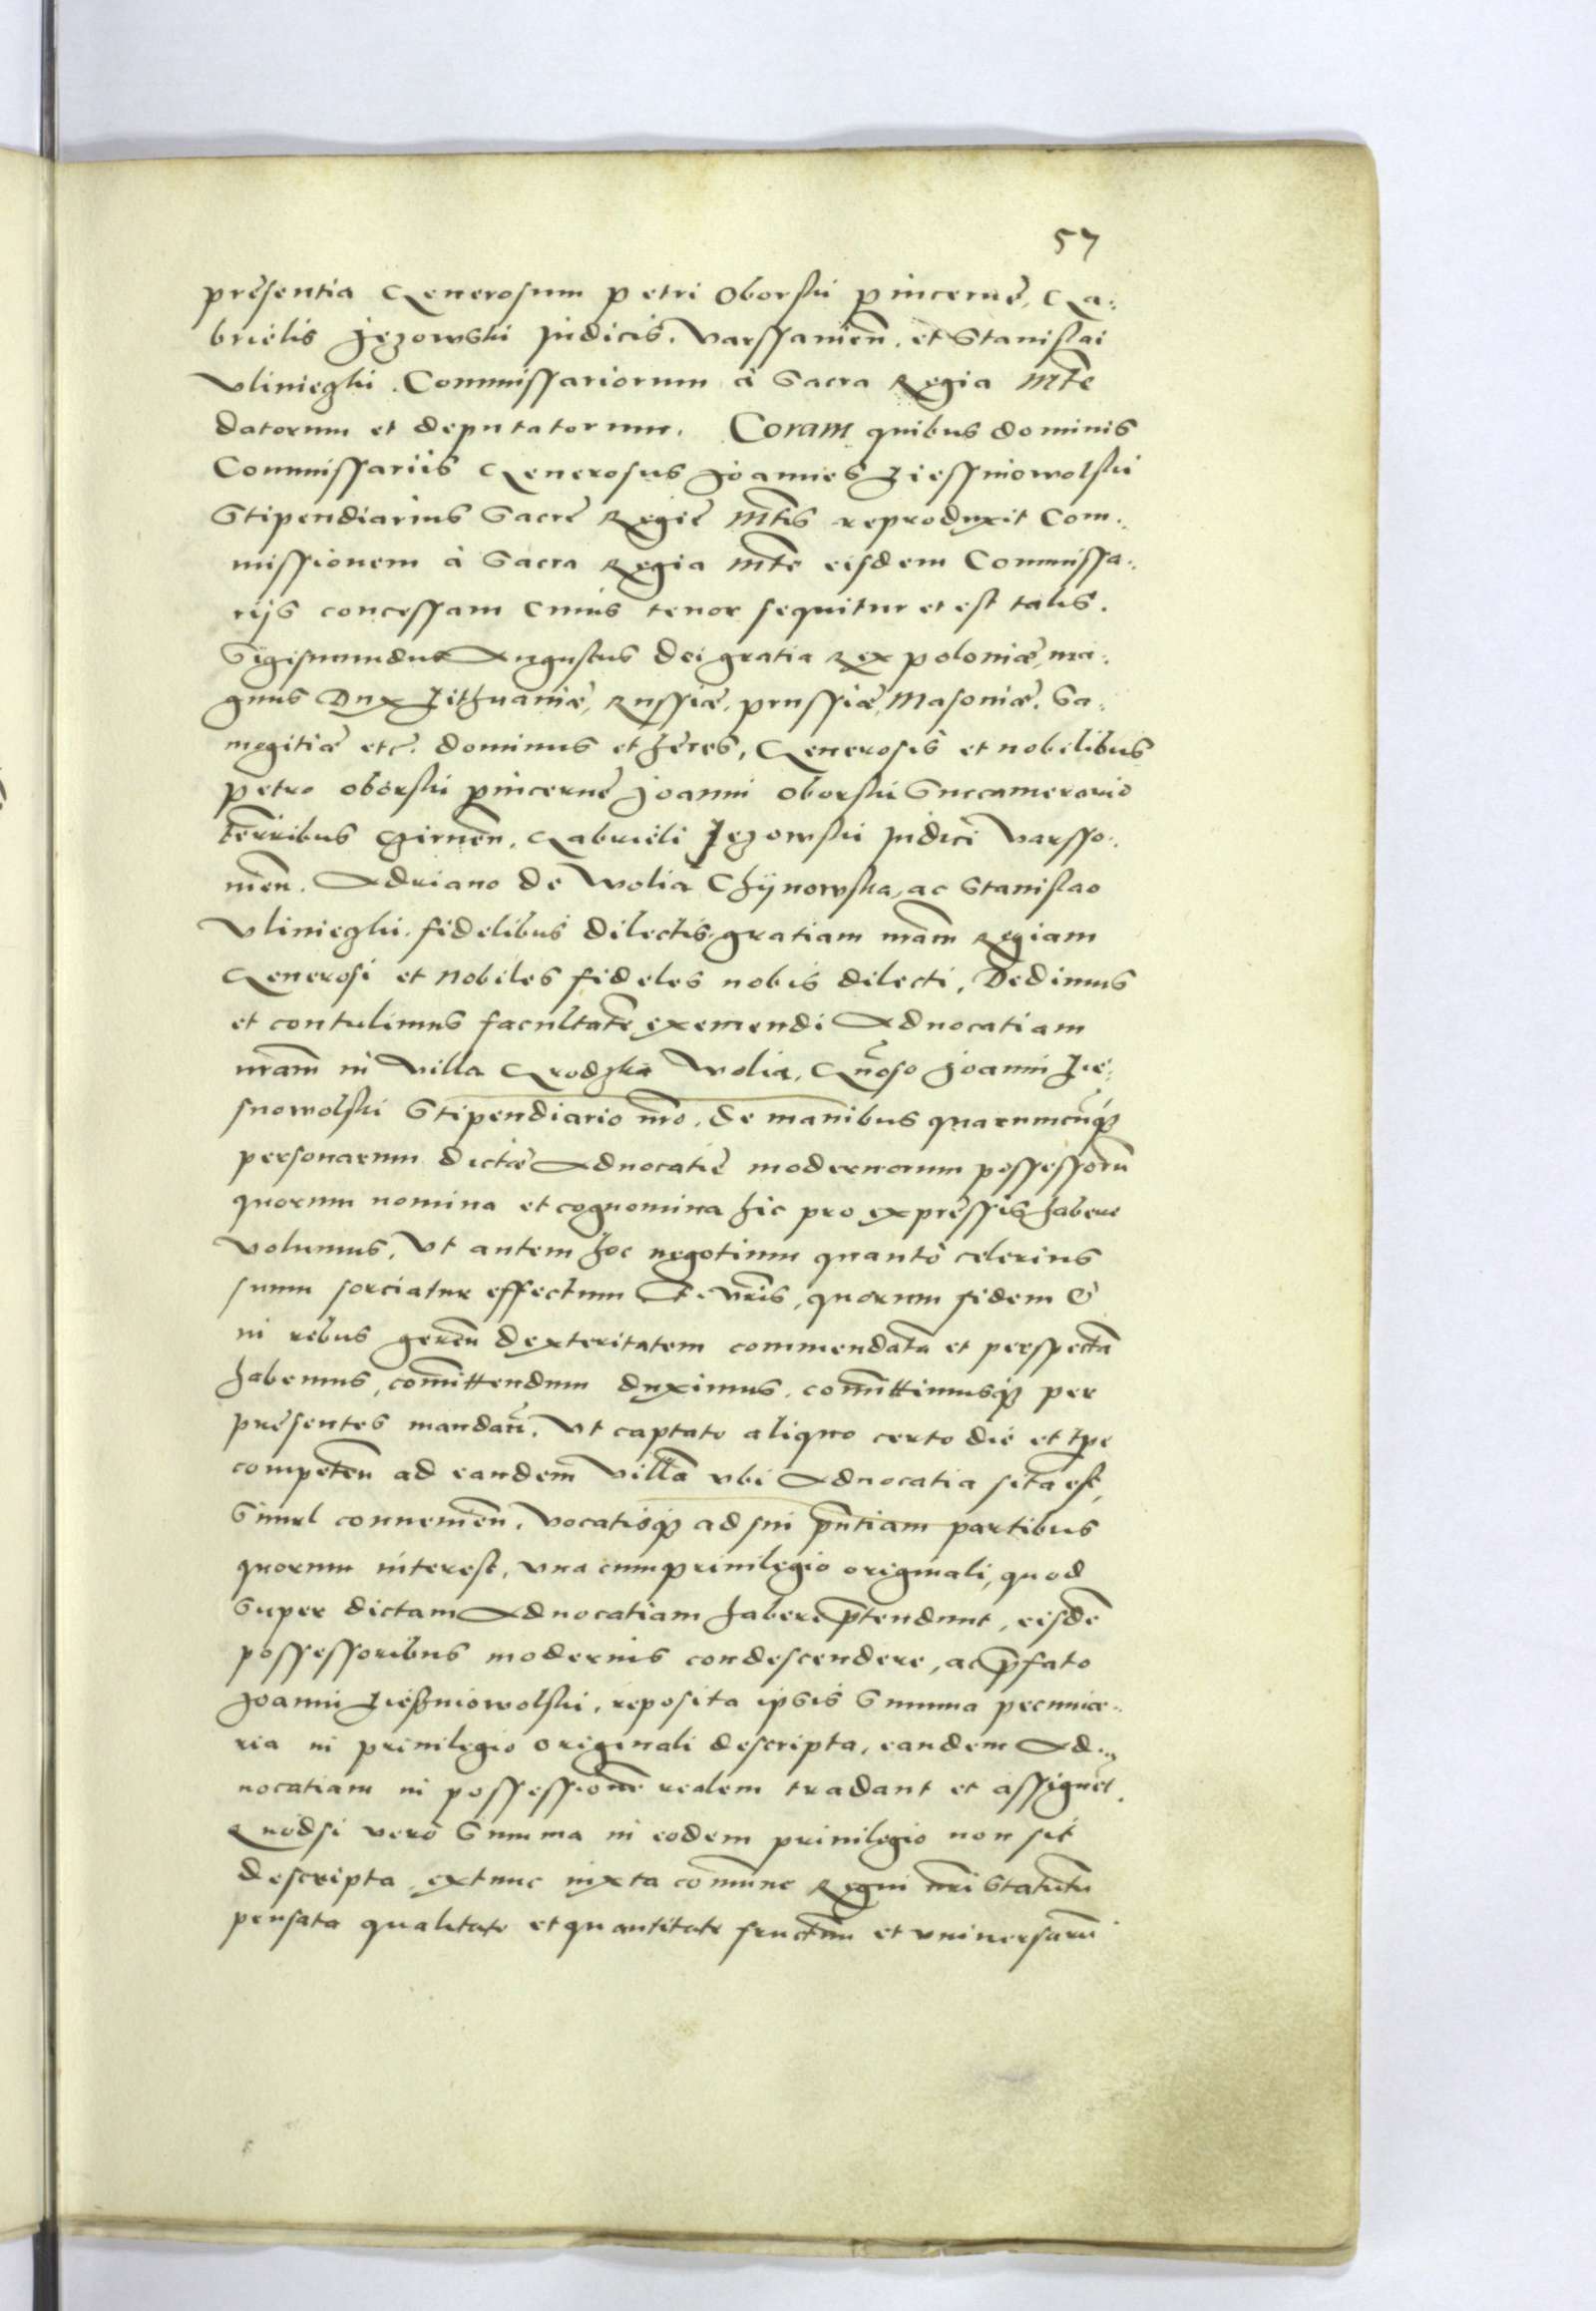 57
presentia Generosum petri Oborski pincerne, Ga:
brielis Jezowski Judicis. Varssavien̄. et Stanislai
Vlinieзki. Commissariorum à Sacra Regia Mte
datorum et deputatorum. Coram quibus dominis
Commissariis Generosus Joannes Liessniowolski
Stipendiarius Sacre Regie Mtis reproduxit Com:
missionem à Sacra Regia Mte eisdem Commissa:
rijs concessam Cuius tenor sequitur et est talis.
Sigismundus Augustus dei gratia Rex poloniæ, ma:
gnus Dux Lithuaniæ, Russiæ, prussiæ, Masoniæ. Sa:
mogitiæ etc. dominus et heres, Generosis et nobilibus
petro oborski pincerne Joanni oborski Succamerario
Cernen̄. Gabrieli Jezowski Judici Varsso:
nien̄. Adriano de Wolia Chÿnowska, ac Stanislao
fidelibus dilectis, gratiam nr̄am Regiam
Generosi et Nobiles fideles nobis dilecti, Dedimus
et contulimus facultatē exemendi Aduocatiam
nr̄am in Villa Grodzka Wolia, Gn̄oso Joanni Lie:
snowolski Stipendiario nr̄o. de manibus quarumcunq̧
personarum dictæ Aduocatie modernorum possessorū
quorum nomina et cognomina hic pro expressis habere
volumus. Vt autem hoc negotium quantò celerius
suum sorciatur effectum F. Vr̄is, quorum fidem &
in rebus geren̄ dexteritatem commendatā et perspectā
habemus, com̄ittendum duximus, com̄ittimusq̧ per
presentes mandan̄. Vt captato aliquo certo die et tpe
competen̄ ad eandem Villā vbi Aduocatia sita est,
Simul conuenien̄. Vocatisq̧ ad sui pn̄tiam partibus
quorum interest, vna cum priuilegio originali, quod
Super dictam Aduocatiam habere p̄tendunt, eisdē
possessoribus modernis condescendere, ac p̄fato
Joanni Liesniowolski, reposita ipsis Summa pecunia:
ria in priuilegio originali descripta, eandem Ad:
uocatiam in possessionē realem tradant et assignēt.
Quodsi verò Summa in eodem priuilegio non sit
descripta, extunc iuxta com̄une Regni nr̄i Statutū
pensata qualitate et quantitate fructuū et vniuersarū